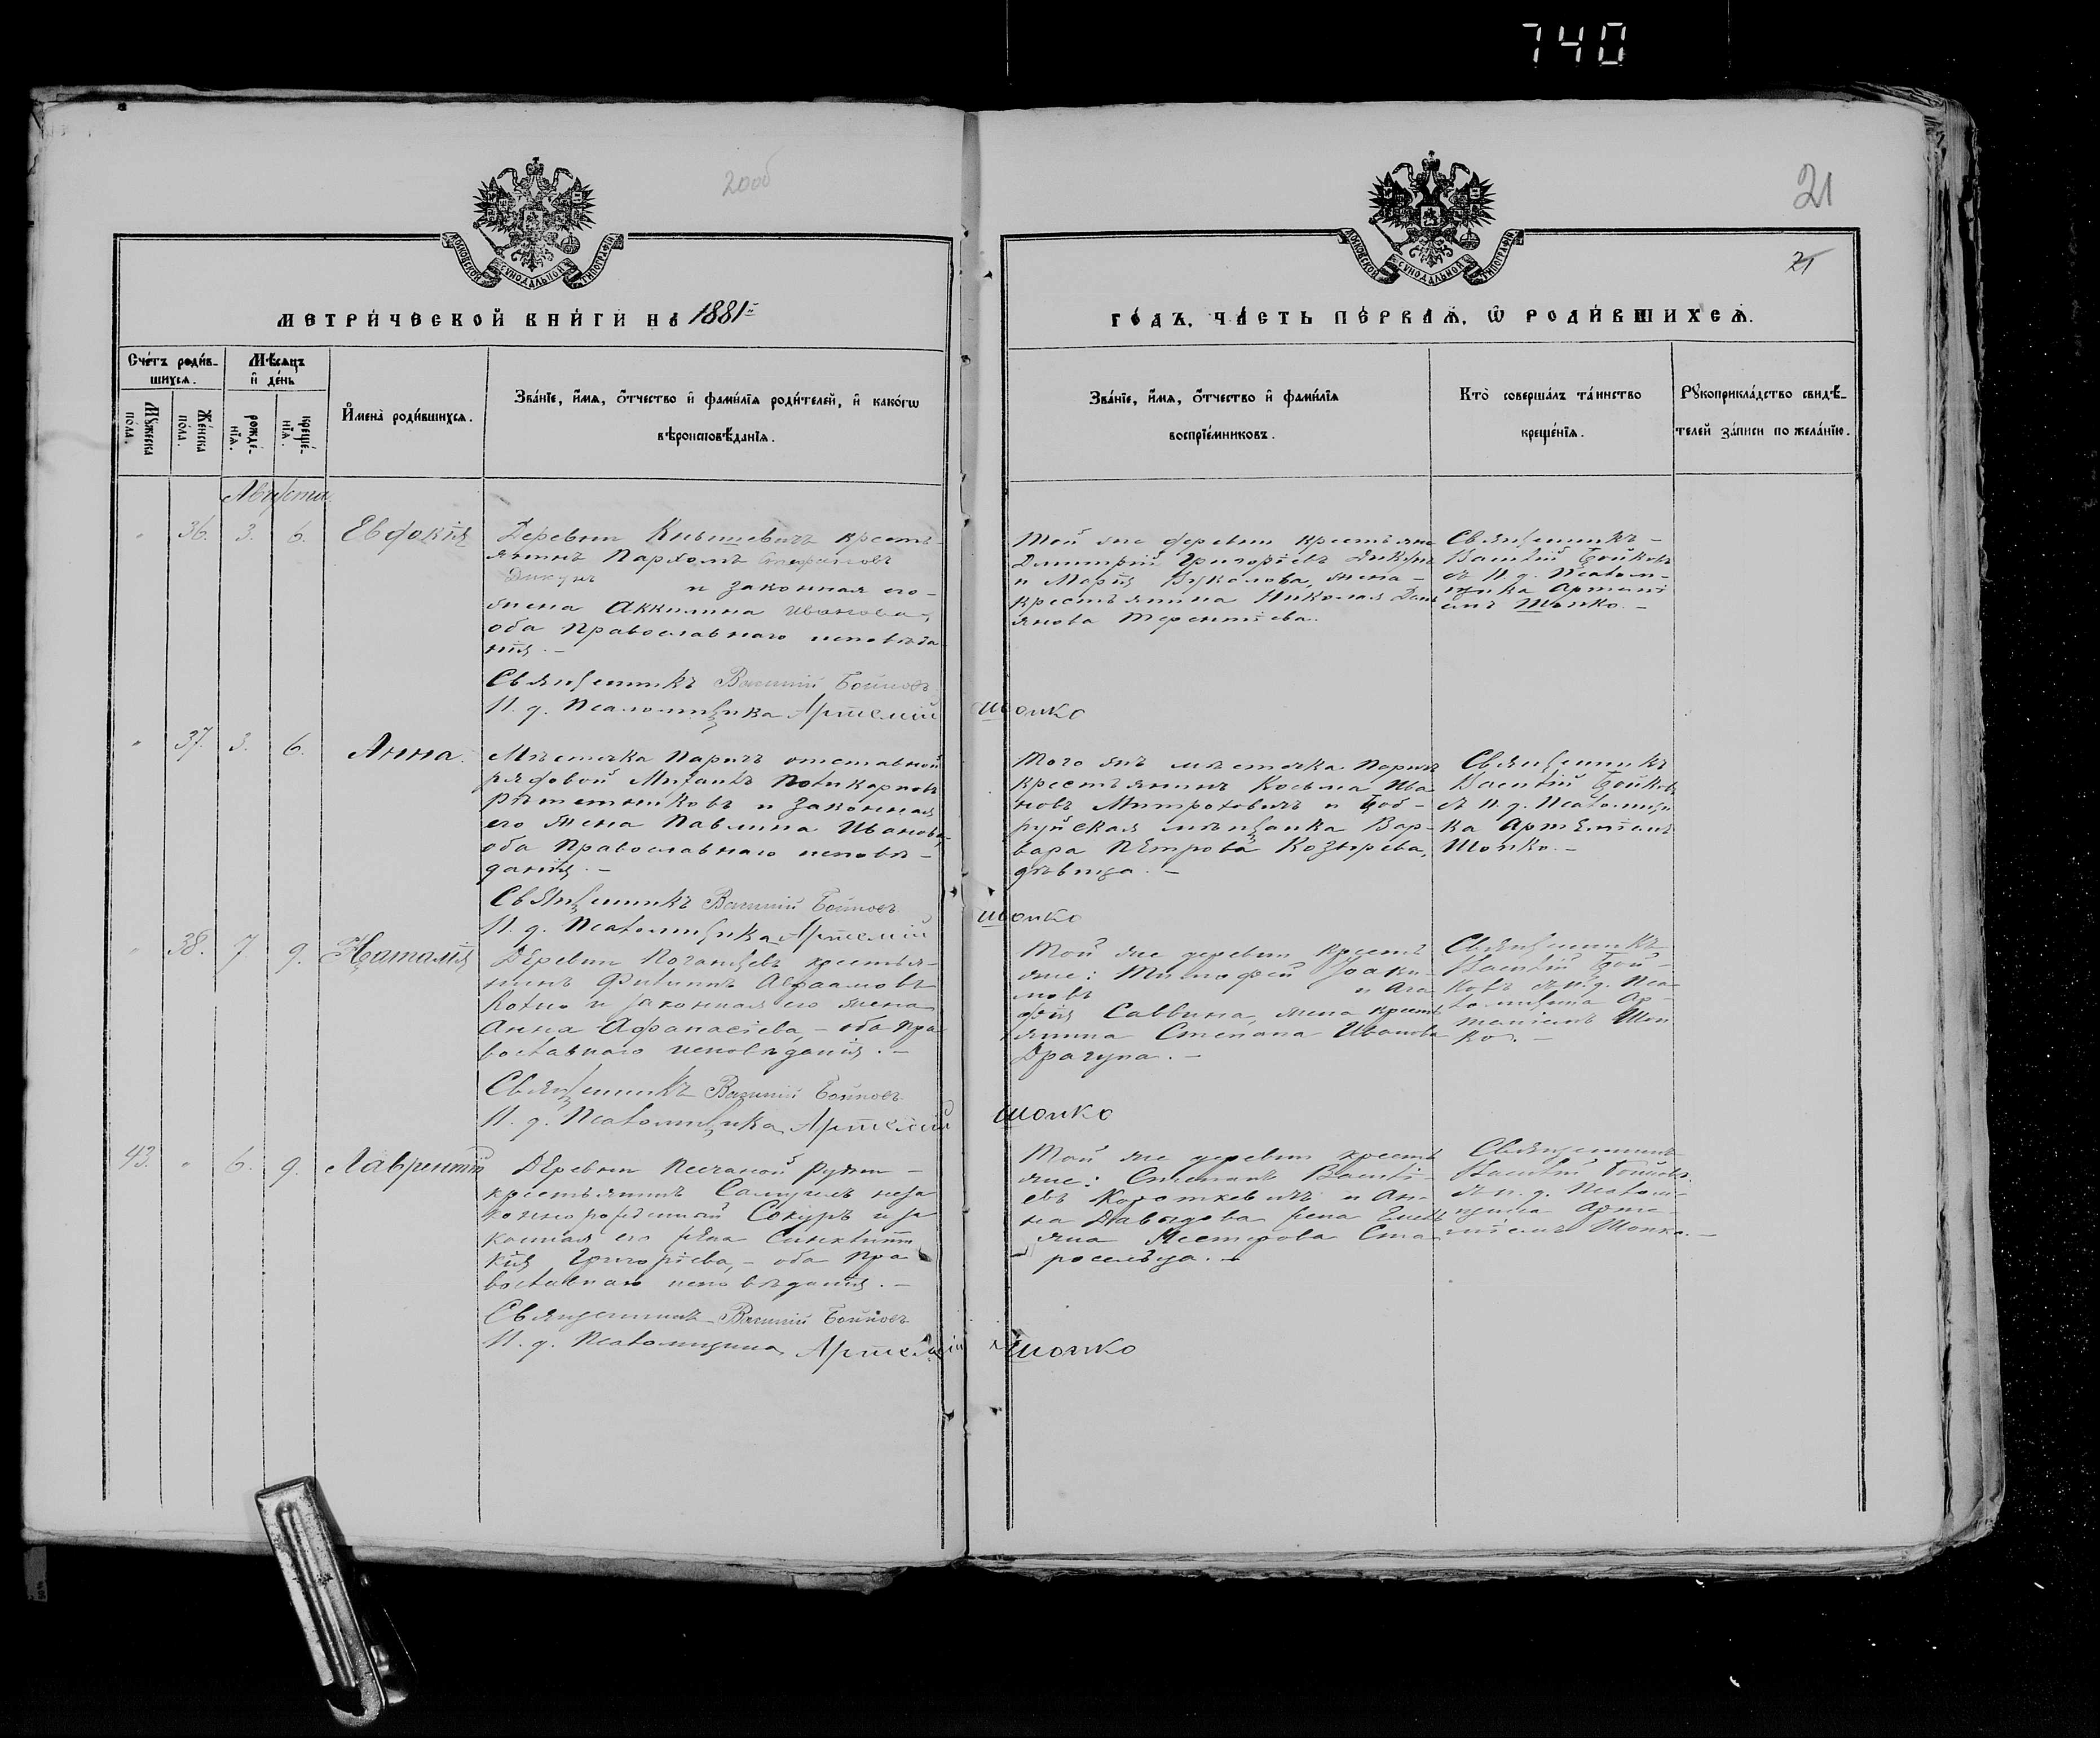 740
20об
21
21
МОСКОВСКОЙ СѴНОДАЛЬНОЙ ТИПОГРАФІИ
МОСКОВСКОЙ СѴНОДАЛЬНОЙ ТИПОГРАФІИ
МЕТРИ́ЧЕСКОЙ КНИ́ГИ НА 1881й
ГО́ДЪ, ЧА́СТЬ ПЕ́РВАѦ, Ѡ РОДИ́ВШИХСѦ.
Сче́тъ роди́в-
шихсѧ.
Мꙋ́жеска по́ла.
Же́нска по́ла.
Мѣ́сѧцъ
и҆ де́нь
рожде́-
нїѧ.
креще́-
нїѧ.
И҆мена̀ роди́вшихсѧ.
Зва́нїе, и҆́мѧ, ѻ҆́тчество и҆ фами́лїѧ роди́телей, и҆ како́гѡ
вѣроисповѣ́данїѧ.
Зва́нїе, и҆́мѧ, ѻ҆́тчество и҆ фами́лїѧ
воспрїе́мниковъ.
Кто̀ соверша́лъ та́инство
креще́нїѧ.
Рꙋкоприкла́дство свидѣ́-
телей за́писи по жела́нїю.
Августа
36. 3. 6. Евдокія
Деревни Кнышевичъ кресть-
янинъ Пархомъ Стефановъ
Дикунъ и законная его
жена Аккилина Иванова,
оба Православнаго исповѣда
нія. –
Той же деревни крестьяне
Димитрій Григорієвъ Дикунъ
и Марія Вукалова, жена
крестьянина Николая Дем
янова Терентіева.
Священникъ
Василій Бойковъ
съ И. д. Псалом-
щика Артемі
емъ Шопко. –
Священникъ Василій Бойковъ
И. д. Псаломщика Артемій Шопко
37. 3. 6. Анна.
Мѣстечка Паричъ отставной
рядовой Михаилъ Поликарповъ
Рѣшетниковъ и законная
его жена Павлина Иванова,
оба Православнаго исповѣ-
данія. –
Того жъ мѣстечка Паричъ
крестьянинъ Косьма Ива
новъ Митроховичъ и Боб-
руйская мѣщанка Вар-
вара Петрова Козырева,
дѣвица. –
Священникъ
Василій Бойковъ
съ И. д. Псаломщи
ка Артеміемъ
Шопко. –
Священникъ Василій Бойковъ
И. д. Псаломщика Артемій Шопко
38. 7. 9. Наталія
Деревни Поганцевъ крестья-
нинъ Филипъ Авраамовъ
и законная его жена
Анна Афанасіева, – оба Пра
вославнаго исповѣданія. –
Той же деревни кресть
яне: Тимофей Іоаки-
мовъ и Ага
фія Саввина, жена кресть
янина Степана Иванова
Драгуна. –
Священникъ
Василій Бой-
ковъ съ И. д. Пса
ломщика Ар-
теміемъ Шоп
ко. –
Священникъ Василій Бойковъ
И. д. Псаломщика Артемій Шопко
43. 6. 9. Лаврентій
Деревни Песчаной Рудни –
крестьянинъ Самуилъ неза
коннорожденный Сокуръ и за
конная его жена Синклити
кія Григоріева, – оба Пра
вославнаго исповѣданія. –
Той же деревни кресть
яне: Степанъ Василі-
евъ Короткевичъ и Ан-
на Давыдова жена
Нестерова Ста
росельца. –
Священникъ
Василій Бойковъ
съ И. д. Псалом-
щика Арте-
міемъ Шопко. –
Священникъ Василій Бойковъ
И. д. Псаломщика Артемій Шопко